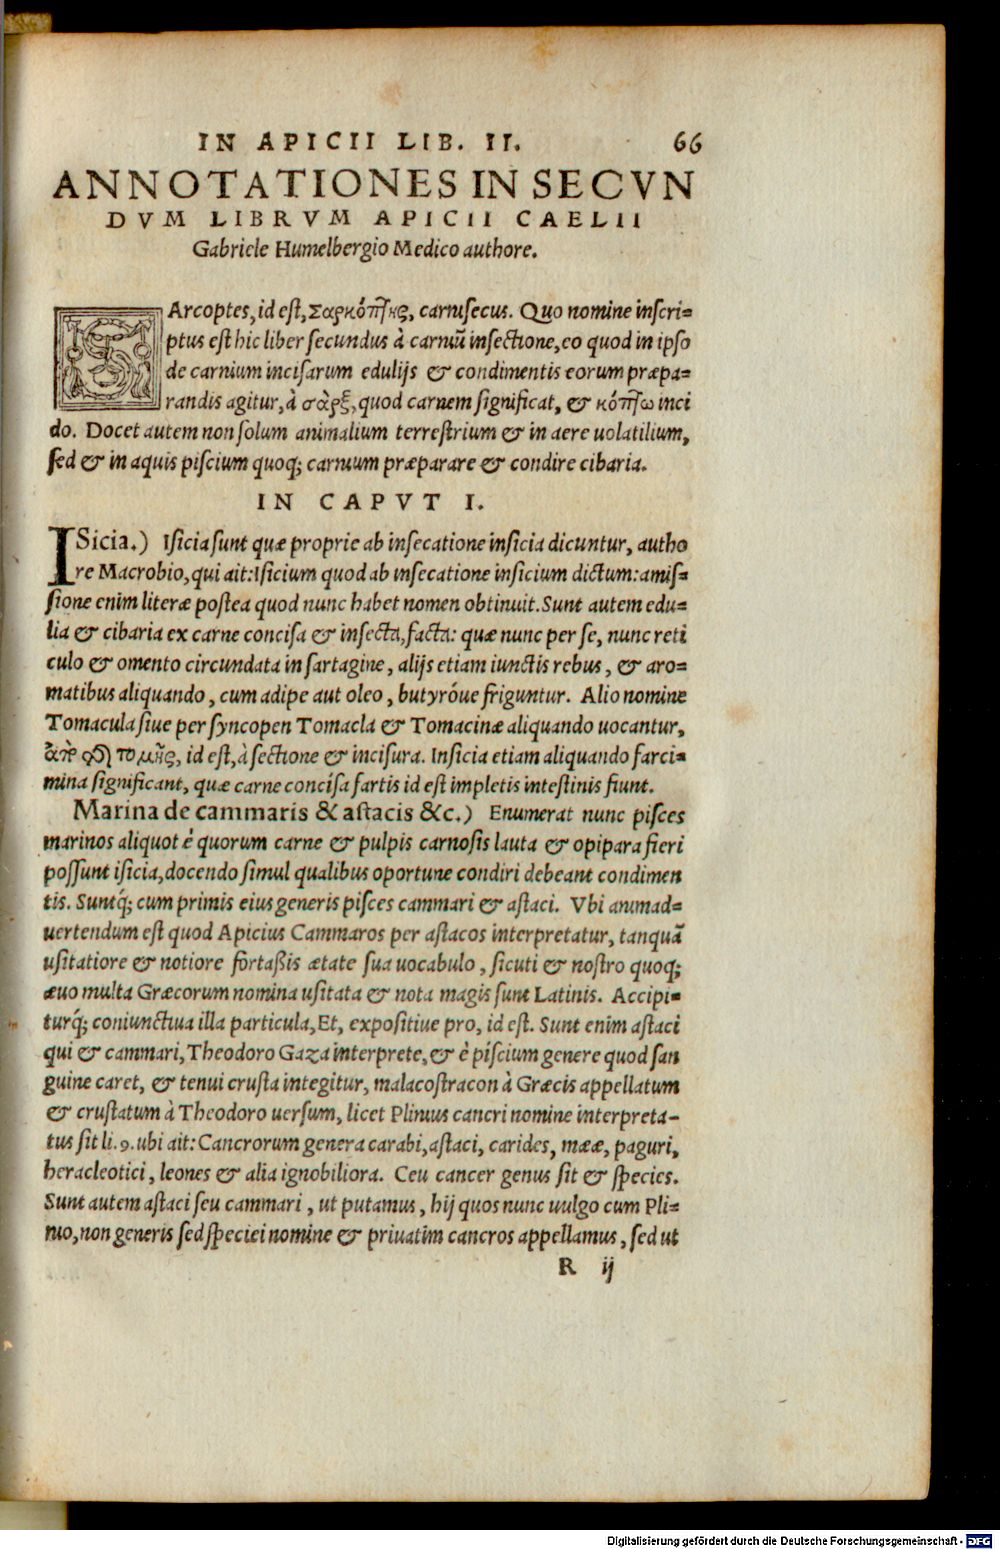 IN APICII LIB. II. 66
ANNOTATIONES IN SECVN
DVM LIBRVM APICII CAELII
Gabriele Humelbergio Medico authore.
SArcoptes, id est, Σαρκόπτης, carnisecus. Quo nomine inscri-
ptus est hic liber secundus à carniū insectione, eo quod in ipso
de carnium incisarum edulijs & condimentis eorum præpa-
randis agitur, à σὰρξ, quod carnem significat, & κόπτω inci
do. Docet autem non solum animalium terrestrium & in aere uolatilium,
sed & in aquis piscium quoq; carnium præparare & condire cibaria.
IN CAPVT I.
ISicia.) Isicia sunt quæ proprie ab insecatione insicia dicuntur, autho
re Macrobio, qui ait: Isicium quod ab insecatione insicium dictum: amis-
sione enim literæ postea quod nunc habet nomen obtinuit. Sunt autem edu-
lia & cibaria ex carne concisa & insecta, facta: quæ nunc per se, nunc reti
culo & omento circundata in sartagine, alijs etiam iunctis rebus, & aro-
matibus aliquando, cum adipe aut oleo, butyróue friguntur. Alio nomine
Tomacula siue per syncopen Tomacla & Tomacinæ aliquando uocantur,
ἀπὸ τῆς τομῆς, id est, à sectione & incisura. Insicia etiam aliquando farci-
mina significant, quæ carne concisa fartis id est impletis intestinis fiunt.
Marina de cammaris & astacis &c.) Enumerat nunc pisces
marinos aliquot è quorum carne & pulpis carnosis lauta & opipara fieri
possunt isicia, docendo simul qualibus oportune condiri debeant condimen
tis. Suntq́; cum primis eius generis pisces cammari & astaci. Vbi animad-
uertendum est quod Apicius Cammaros per astacos interpretatur, tanquā
usitatiore & notiore fortaßis ætate sua uocabulo, sicuti & nostro quoq;
æuo multa Græcorum nomina usitata & nota magis sunt Latinis. Accipi-
turq́; coniunctiua illa particula, Et, expositiue pro, id est. Sunt enim astaci
qui & cammari, Theodoro Gaza interprete, & è piscium genere quod san
guine caret, & tenui crusta integitur, malacostracon à Græcis appellatum
& crustatum à Theodoro uersum, licet Plinius cancri nomine interpreta-
tus sit li. 9. ubi ait: Cancrorum genera carabi, astaci, carides, mææ, paguri,
heracleotici, leones & alia ignobiliora. Ceu cancer genus sit & species.
Sunt autem astaci seu cammari, ut putamus, hij quos nunc uulgo cum Pli-
nio, non generis sed speciei nomine & priuatim cancros appellamus, sed ut
R ij
Digitalisierung gefördert durch die Deutsche Forschungsgemeinschaft - DFG